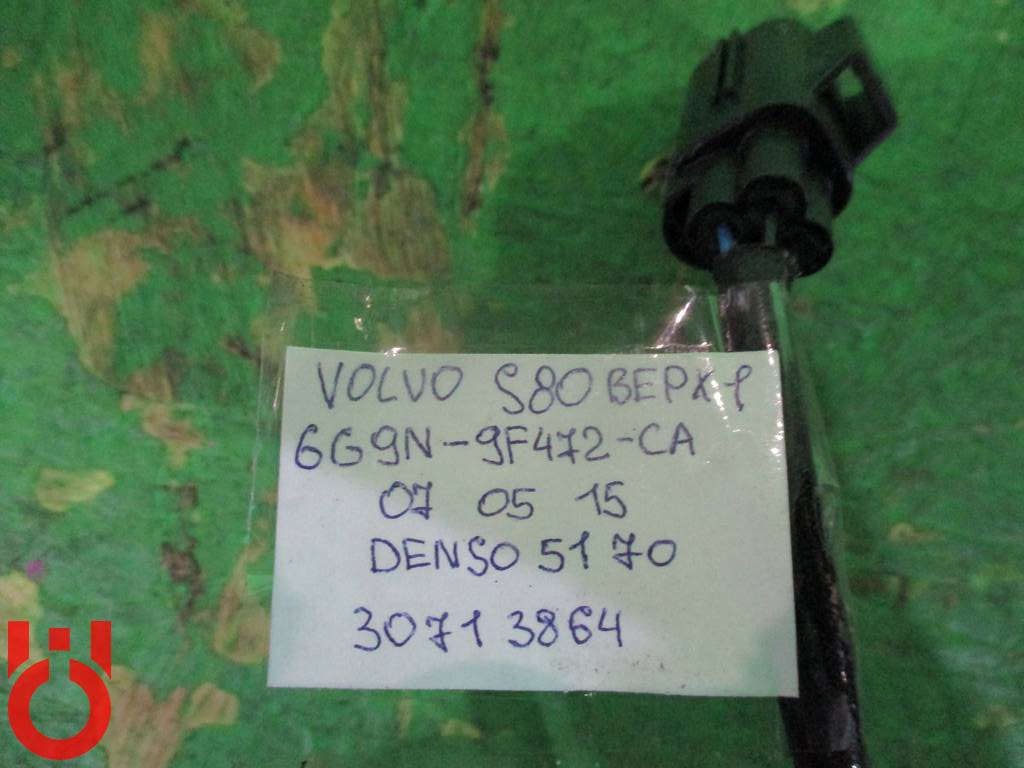 VOLVO S80 ВЕРХ-1
6G9N-9F472-CA
07 05 15
DENSO 51 70
3071 3864